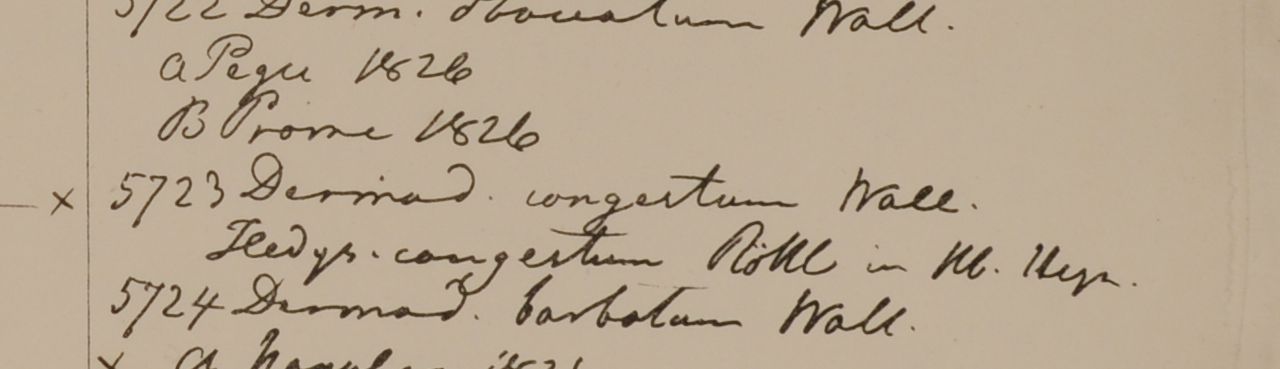 5722 Derm. obovatum Wall.
a Pegu 1826
B Prome 1826
x 5723 Dermad. congestum Wall.
Hedys. congestum Röttl in Hb. Heyn.
5724 Dermad. barbatum Wall.
x a 1821